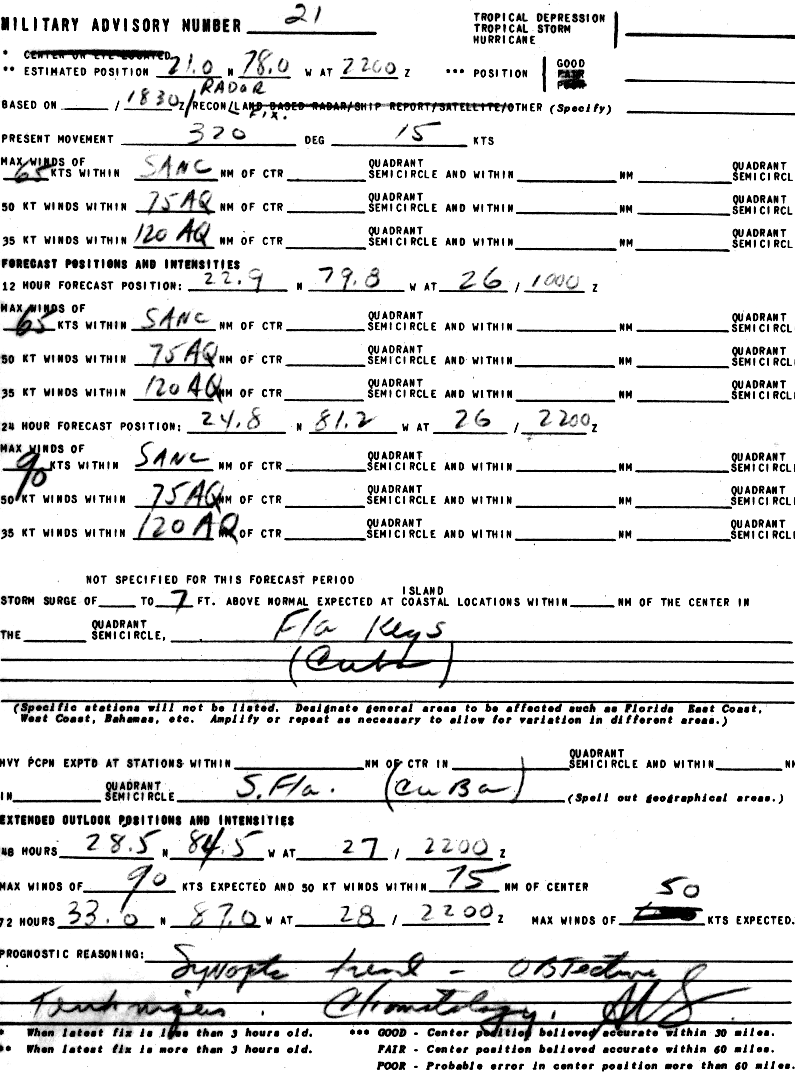 MILITARY ADVISORY NUMBER 21 TROPICAL DEPRESSION
TROPICAL STORM
HURRICANE
* CENTER OR EYE LOCATED
** ESTIMATED POSITION 21.0 N 78.0 W AT 2200 Z *** POSITION GOOD
FAIR
POOR
RADAR
BASED ON / 1830 Z/RECON/LAND BASED RADAR/SHIP REPORT/SATELLITE/OTHER (Specify)
FIX.
PRESENT MOVEMENT 320 DEG 15 KTS
MAX WINDS OF QUADRANT QUADRANT
65 KTS WITHIN SANC NM OF CTR SEMICIRCLE AND WITHIN NM SEMICIRCL
QUADRANT QUADRANT
50 KT WINDS WITHIN 75 AQ NM OF CTR SEMICIRCLE AND WITHIN NM SEMICIRCL
QUADRANT QUADRANT
35 KT WINDS WITHIN 120 AQ NM OF CTR SEMICIRCLE AND WITHIN NM SEMICIRCL
FORECAST POSITIONS AND INTENSITIES
12 HOUR FORECAST POSITION: 22.9 N 79.8 W AT 26 / 1000 Z
MAX WINDS OF QUADRANT QUADRANT
65 KTS WITHIN SANC NM OF CTR SEMICIRCLE AND WITHIN NM SEMICIRCL
QUADRANT QUADRANT
50 KT WINDS WITHIN 75 AQ NM OF CTR SEMICIRCLE AND WITHIN NM SEMICIRCL
QUADRANT QUADRANT
35 KT WINDS WITHIN 120 AQ NM OF CTR SEMICIRCLE AND WITHIN NM SEMICIRCL
24 HOUR FORECAST POSITION: 24.8 N 81.2 W AT 26 / 2200 Z
MAX WINDS OF QUADRANT QUADRANT
90 KTS WITHIN SANC NM OF CTR SEMICIRCLE AND WITHIN NM SEMICIRCL
QUADRANT QUADRANT
50 KT WINDS WITHIN 75 AQ NM OF CTR SEMICIRCLE AND WITHIN NM SEMICIRCL
QUADRANT QUADRANT
35 KT WINDS WITHIN 120 AQ NM OF CTR SEMICIRCLE AND WITHIN NM SEMICIRCLE
NOT SPECIFIED FOR THIS FORECAST PERIOD
ISLAND
STORM SURGE OF TO 7 FT. ABOVE NORMAL EXPECTED AT COASTAL LOCATIONS WITHIN NM OF THE CENTER IN
QUADRANT
THE SEMICIRCLE, Fla Keys
(Cuba)
(Specific stations will not be listed. Designate general areas to be affected such as Florida East Coast,
West Coast, Bahamas, etc. Amplify or repeat as necessary to allow for variation in different areas.)
QUADRANT
HVY PCPN EXPTD AT STATIONS WITHIN NM OF CTR IN SEMICIRCLE AND WITHIN NM
QUADRANT
IN SEMICIRCLE S. Fla. (CuBa) (Spell out geographical areas.)
EXTENDED OUTLOOK POSITIONS AND INTENSITIES
48 HOURS 28.5 N 84.5 W AT 27 / 2200 Z
MAX WINDS OF 90 KTS EXPECTED AND 50 KT WINDS WITHIN 75 NM OF CENTER
50
72 HOURS 33.0 N 87.0 W AT 28 / 2200 Z MAX WINDS OF KTS EXPECTED.
PROGNOSTIC REASONING:
Synoptic trend - OBJective
Techniques. Climatology.
* When latest fix is less than 3 hours old. *** GOOD - Center position believed accurate within 30 miles.
** When latest fix is more than 3 hours old. FAIR - Center position believed accurate within 60 miles.
POOR - Probable error in center position more than 60 miles.